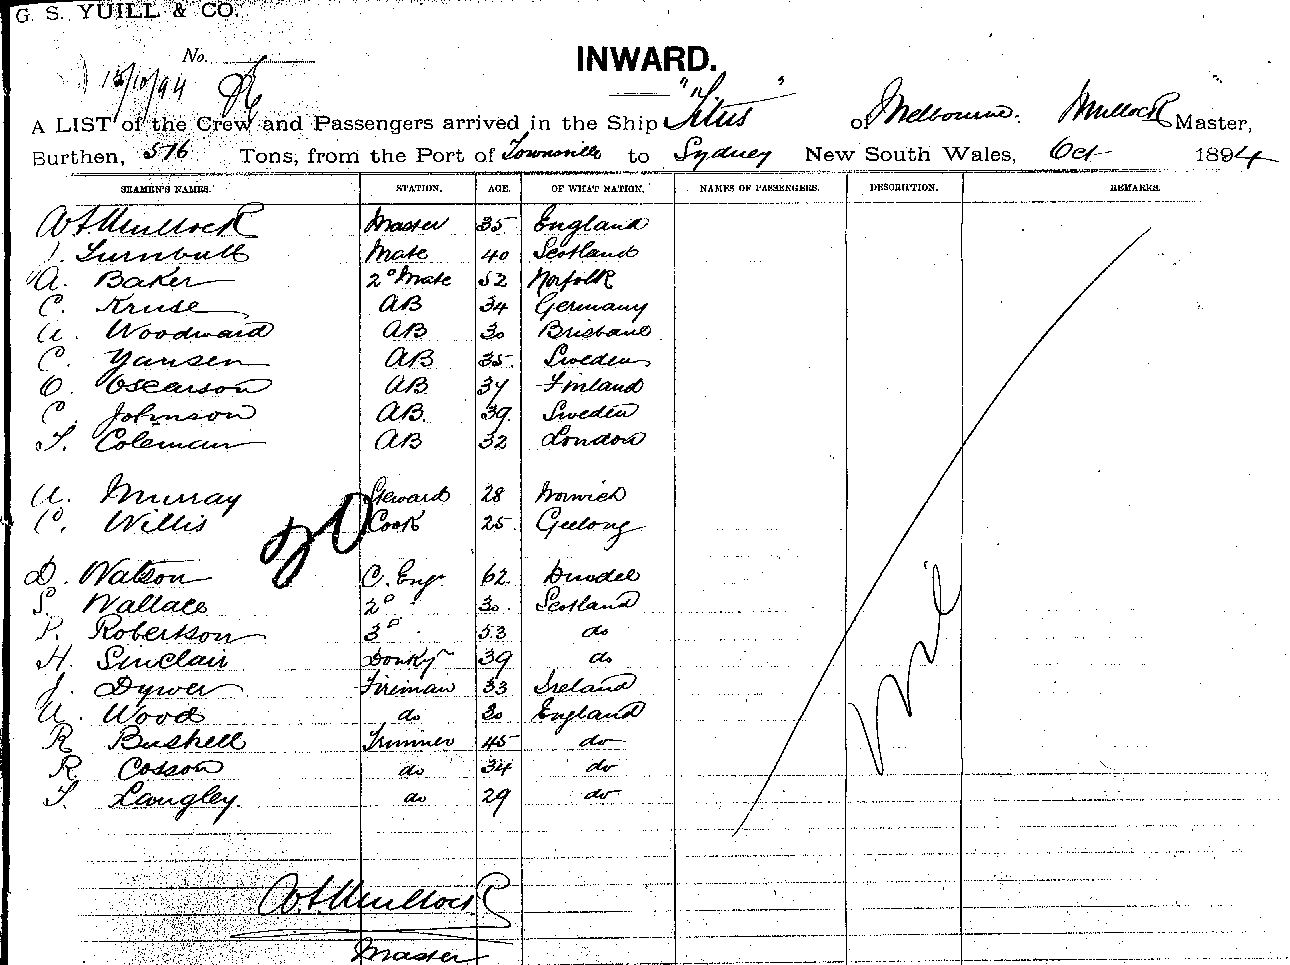 G. S. YUILL & CO.
No.
15/10/94
INWARD.
A LIST of the Crew and Passengers arrived in the Ship "Titus" of Melbourne. Mullock Master,
Burthen, 576 Tons, from the Port of Townsville to Sydney New South Wales, Oct 1894
SEAMEN'S NAMES. STATION. AGE. OF WHAT NATION. NAMES OF PASSENGERS. DESCRIPTION. REMARKS.
Mullock Master 35 England
Turnbull Mate 40 Scotland
A. Baker 2d Mate 52 Norfolk
C. Kruse AB 34 Germany
A. Woodward AB 30 Brisbane
C. Yansen AB 35 Sweden
O. Oscarson AB 37 Finland
C. Johnson AB. 39 Sweden
T. Coleman AB 32 London
A. Murray Steward 28 Norwich
C. Willis Cook 25 Geelong
20
D. Watson C. Engr 62 Dundee
S. Wallace 2d 30 Scotland
P. Robertson 3d 53 do
H. Sinclair Donkyn 39 do
J. Dywer Fireman 33 Ireland
A. Wood do 30 England
R. Bushell Trimmer 45 do
R. Cosson do 34 do
T. Langley. do 29 do
Nil
Mullock
Master